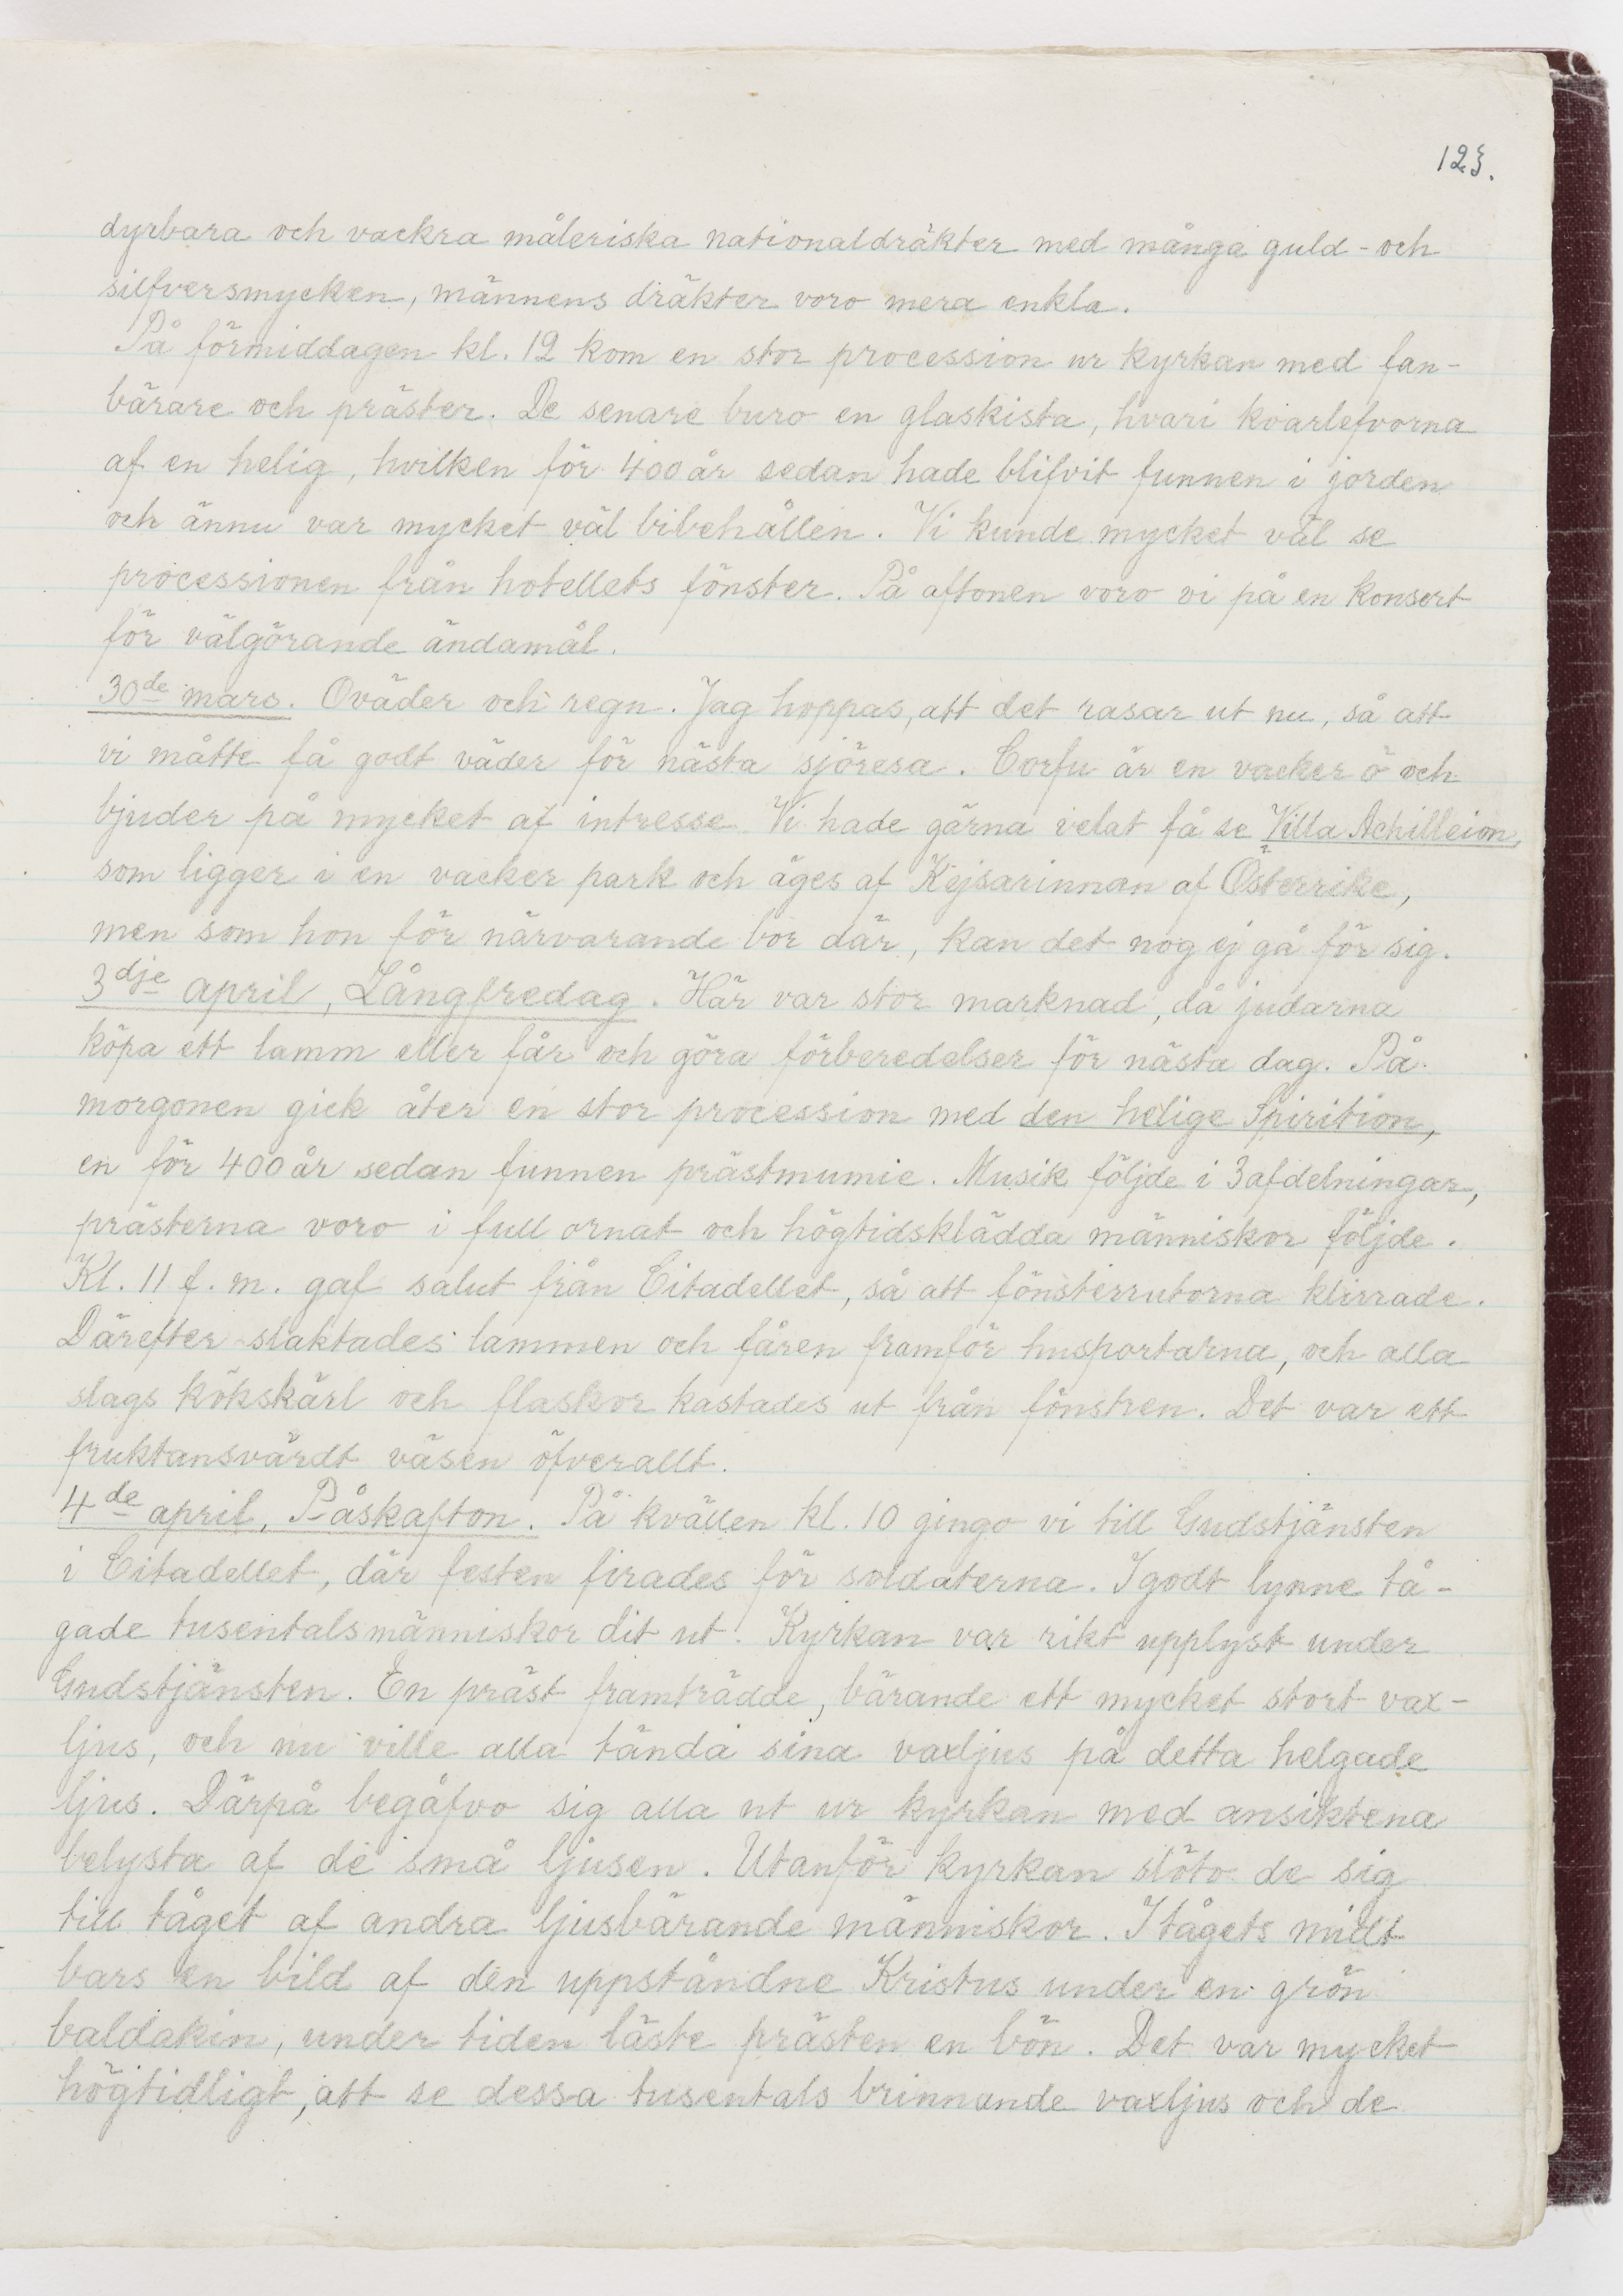 123.
dyrbara och vackra måleriska nationaldräkter med många guld- och
silfversmycken, männens dräkter voro mera enkla.
På förmiddagen kl. 12 kom en stor procession ur kyrkan med fan-
bärare och präster. De senare buro en glaskista, hvari kvarlefvorna
af en helig, hvilken för 400 år sedan hade blifvit funnen i jorden
och ännu var mycket väl bibehållen. Vi kunde mycket väl se
processionen från hotellets fönster. På aftonen voro vi på en konsert
för välgörande ändamål.
30de mars. Oväder och regn. Jag hoppas, att det rasar ut nu, så att
vi måtte få godt väder för nästa sjöresa. Corfu är en vacker ö och
bjuder på mycket af intresse. Vi hade gärna velat få se Villa Achilleion,
som ligger i en vacker park och äges af Kejsarinnan af Österrike,
men som hon för närvarande bor där, kan det nog ej gå för sig.
3dje april, Långfredag. Här var stor marknad, då judarna
köpa ett lamm eller får och göra förberedelser för nästa dag. På
morgonen gick åter en stor procession med den helige Spirition,
en för 400 år sedan funnen prästmumie. Musik följde i 3 afdelningar,
prästerna voro i full ornat och högtidsklädda människor följde.
Kl. 11 f. m. gaf salut från Citadellet, så att fönsterrutorna klirrade.
Därefter slaktades lammen och fåren framför husportarna, och alla
slags kökskärl och flaskor kastades ut från fönstren. Det var ett
fruktansvärdt väsen öfverallt.
4de april, Påskafton. På kvällen kl. 10 gingo vi till Gudstjänsten
i Citadellet, där festen firades för soldaterna. I godt lynne tå-
gade tusentals människor dit ut. Kyrkan var rikt upplyst under
Gudstjänsten. En präst framträdde, bärande ett mycket stort vax-
ljus, och nu ville alla tända sina vaxljus på detta helgade
ljus. Därpå begåfvo sig alla ut ur kyrkan med ansiktena
belysta af de små ljusen. Utanför kyrkan slöto de sig
till tåget af andra ljusbärande människor. I tågets midt
bars en bild af den uppståndne Kristus under en grön
baldakin, under tiden läste prästen en bön. Det var mycket
högtidligt, att se dessa tusentals brinnande vaxljus och de